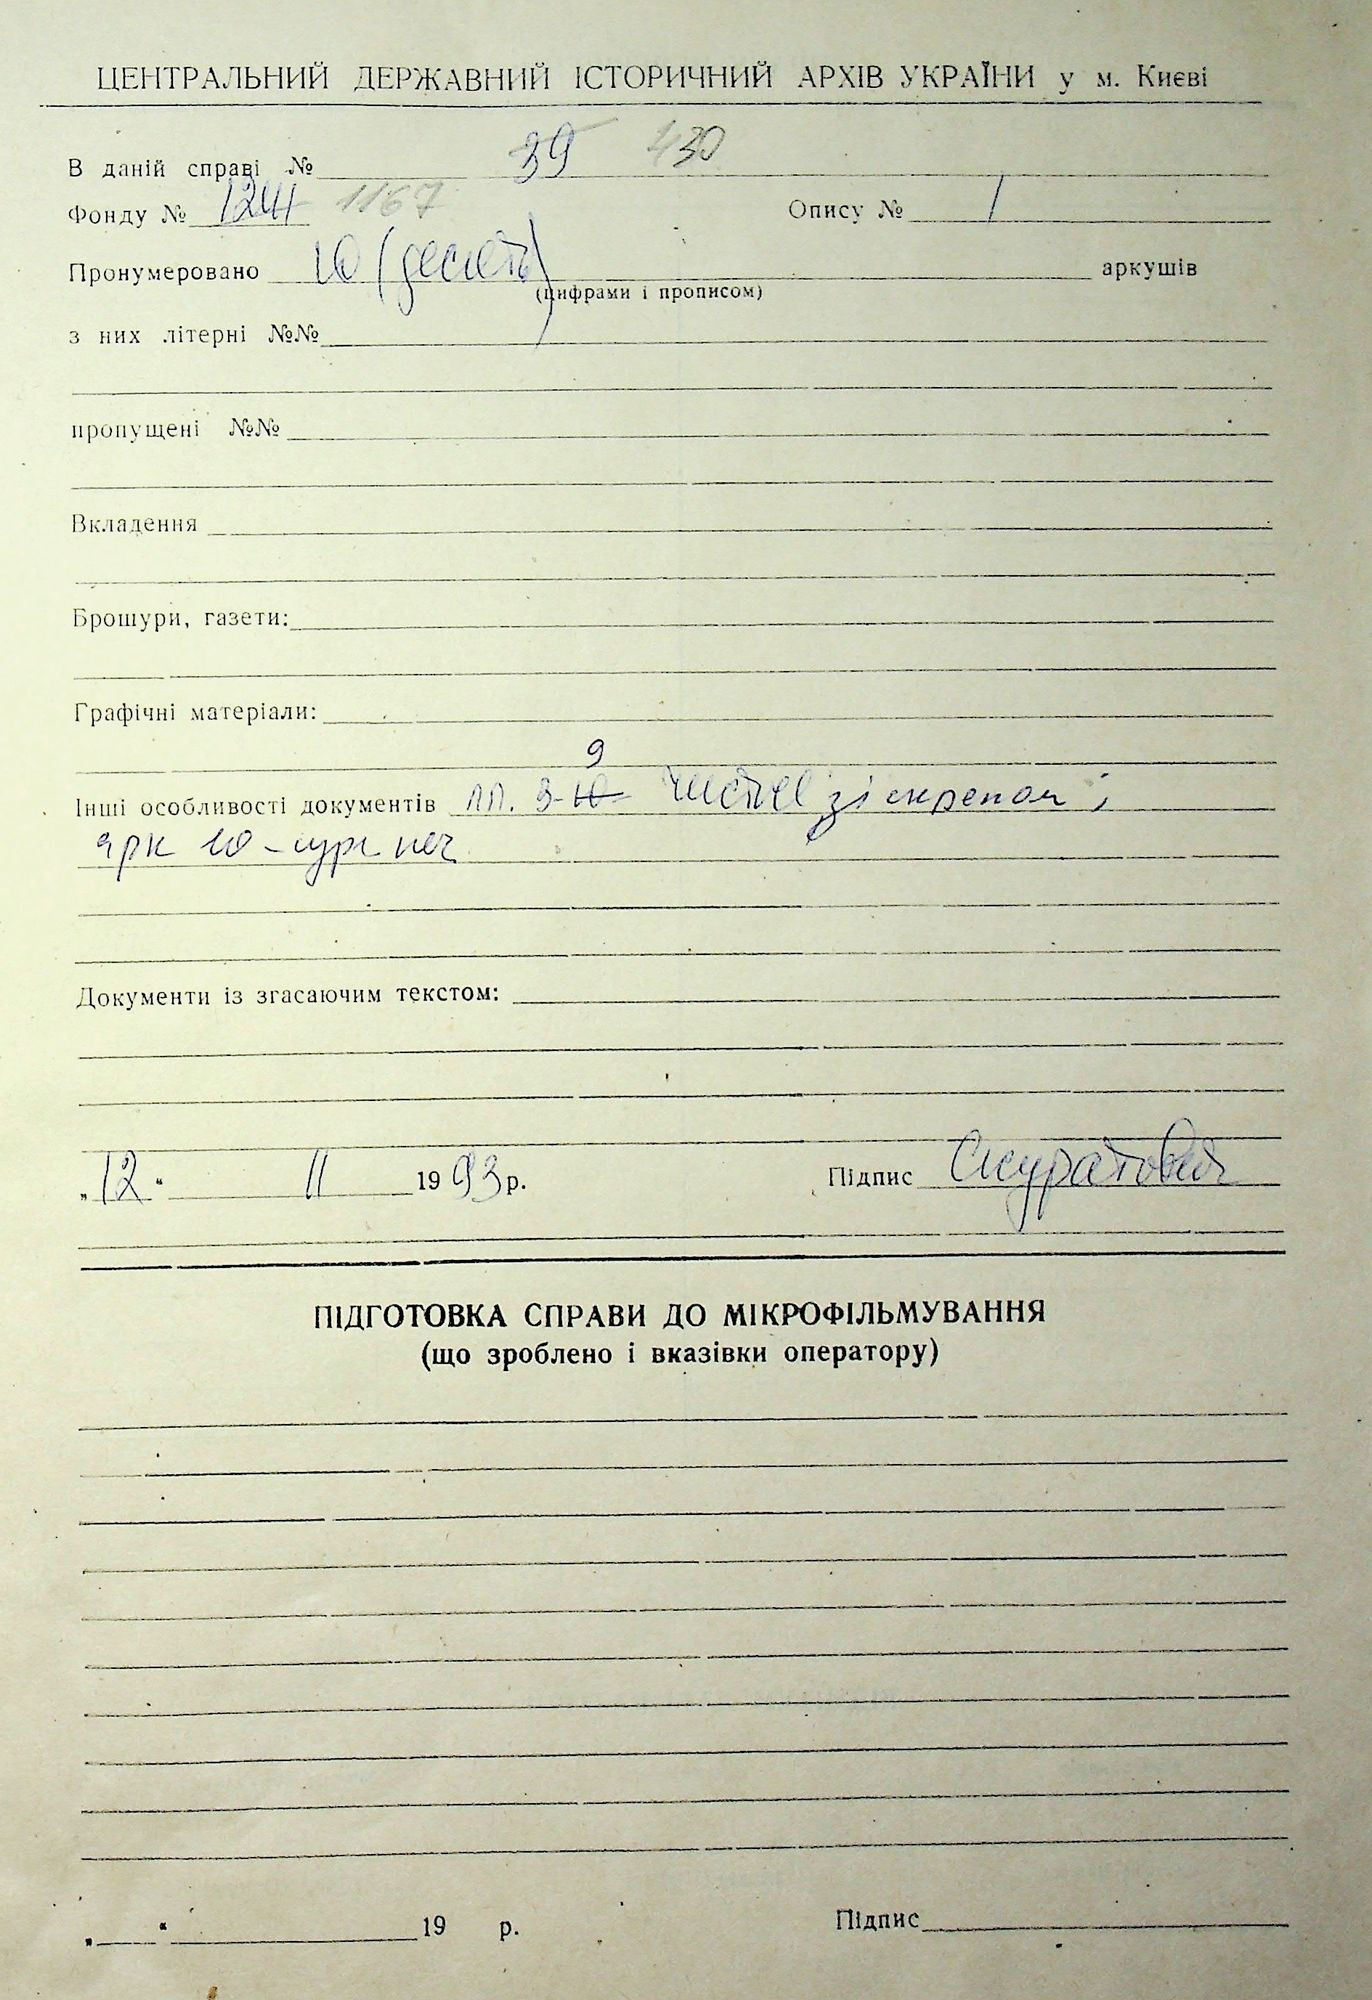 ЦЕНТРАЛЬНИЙ ДЕРЖАВНИЙ ІСТОРИЧНИЙ АРХІВ УКРАЇНИ у м. Києві
В даній справі № 39 430
Фонду № 1241 1167 Опису № 1
Пронумеровано 10 (десять) аркушів
(цифрами і прописом)
з них літерні №№
пропущені №№
Вкладення
Брошури, газети:
Графічні матеріали:
9
Інші особливості документів 3-10 чисті зі скрепом,
арк 10 - сург печ
Документи із згасаючим текстом:
„12“ 11 1993 р. Підпис Скуратович
ПІДГОТОВКА СПРАВИ ДО МІКРОФІЛЬМУВАННЯ
(що зроблено і вказівки оператору)
„ “ 19 р. Підпис